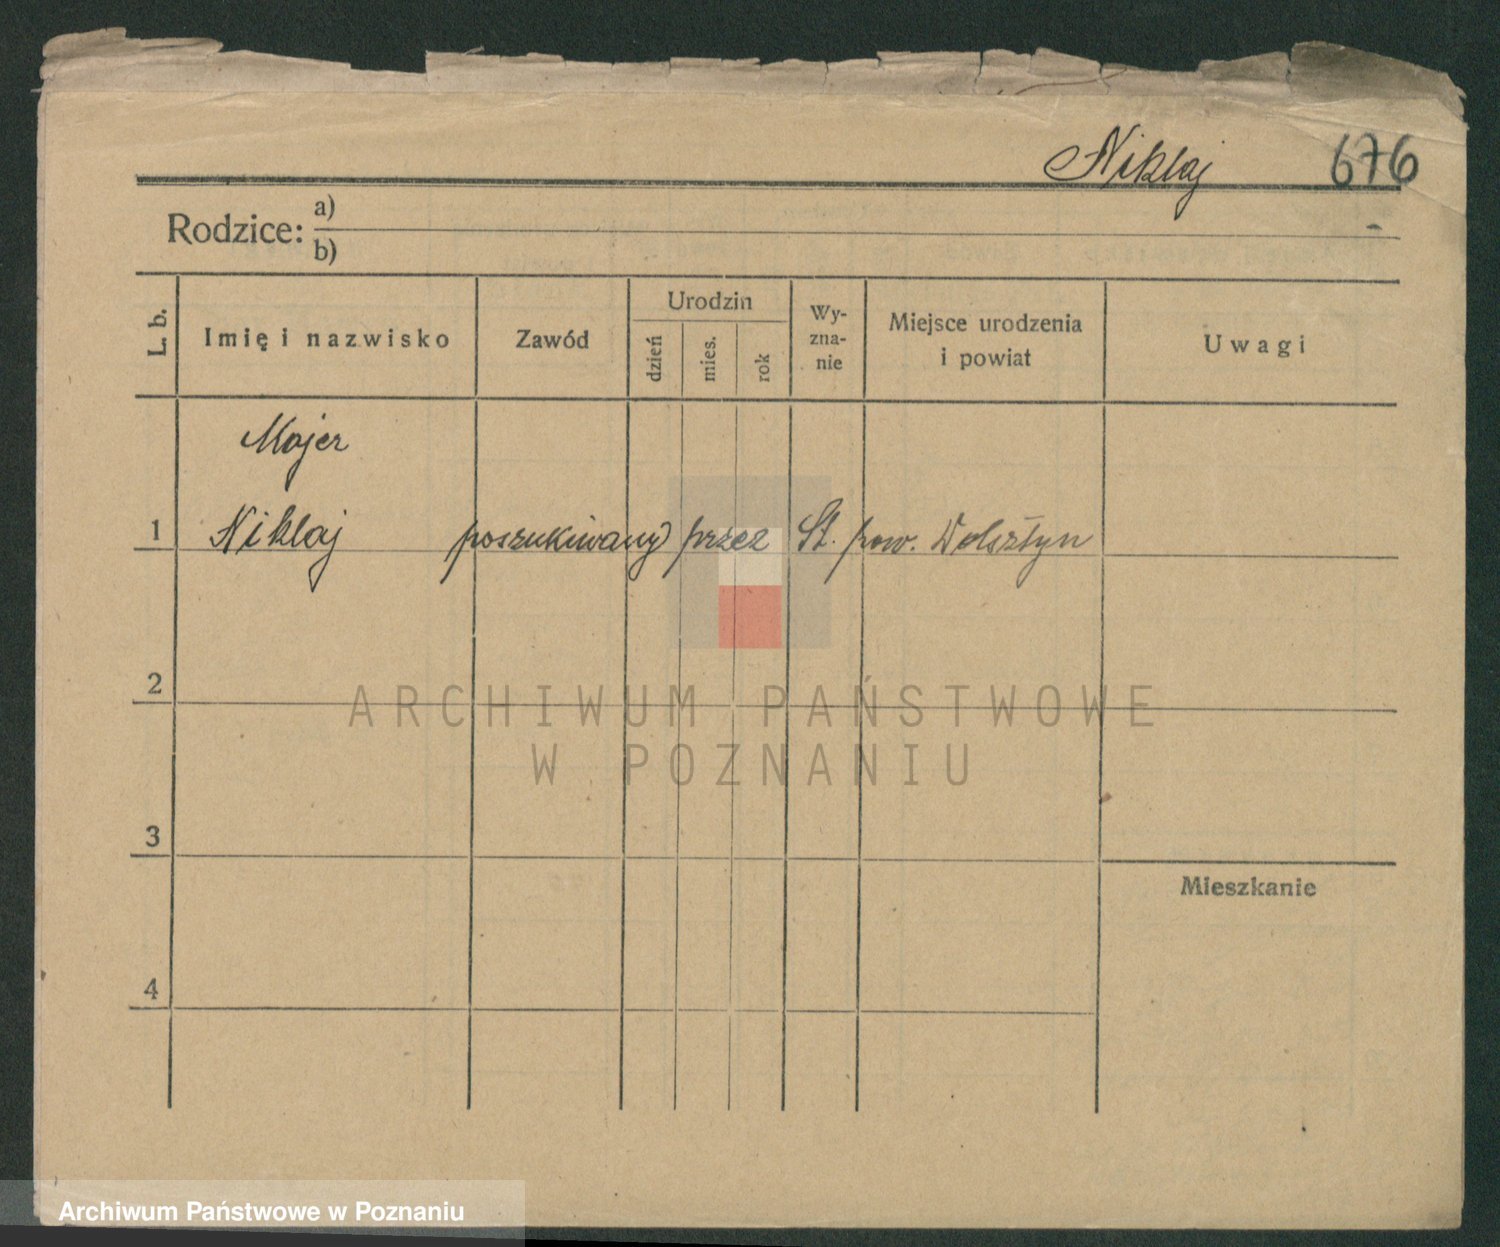 Niklaj 676
Rodzice: a)
b)
L. b.
Imię i nazwisko
Zawód
Urodzin
dzień
mies.
rok
Wy-
zna-
nie
Miejsce urodzenia
i powiat
Uwagi
Majer
1 Niklaj poszukiwany przez St. pow. Wolsztyn
2
ARCHIWUM PAŃSTWOWE
W POZNANIU
3
Mieszkanie
4
Archiwum Państwowe w Poznaniu